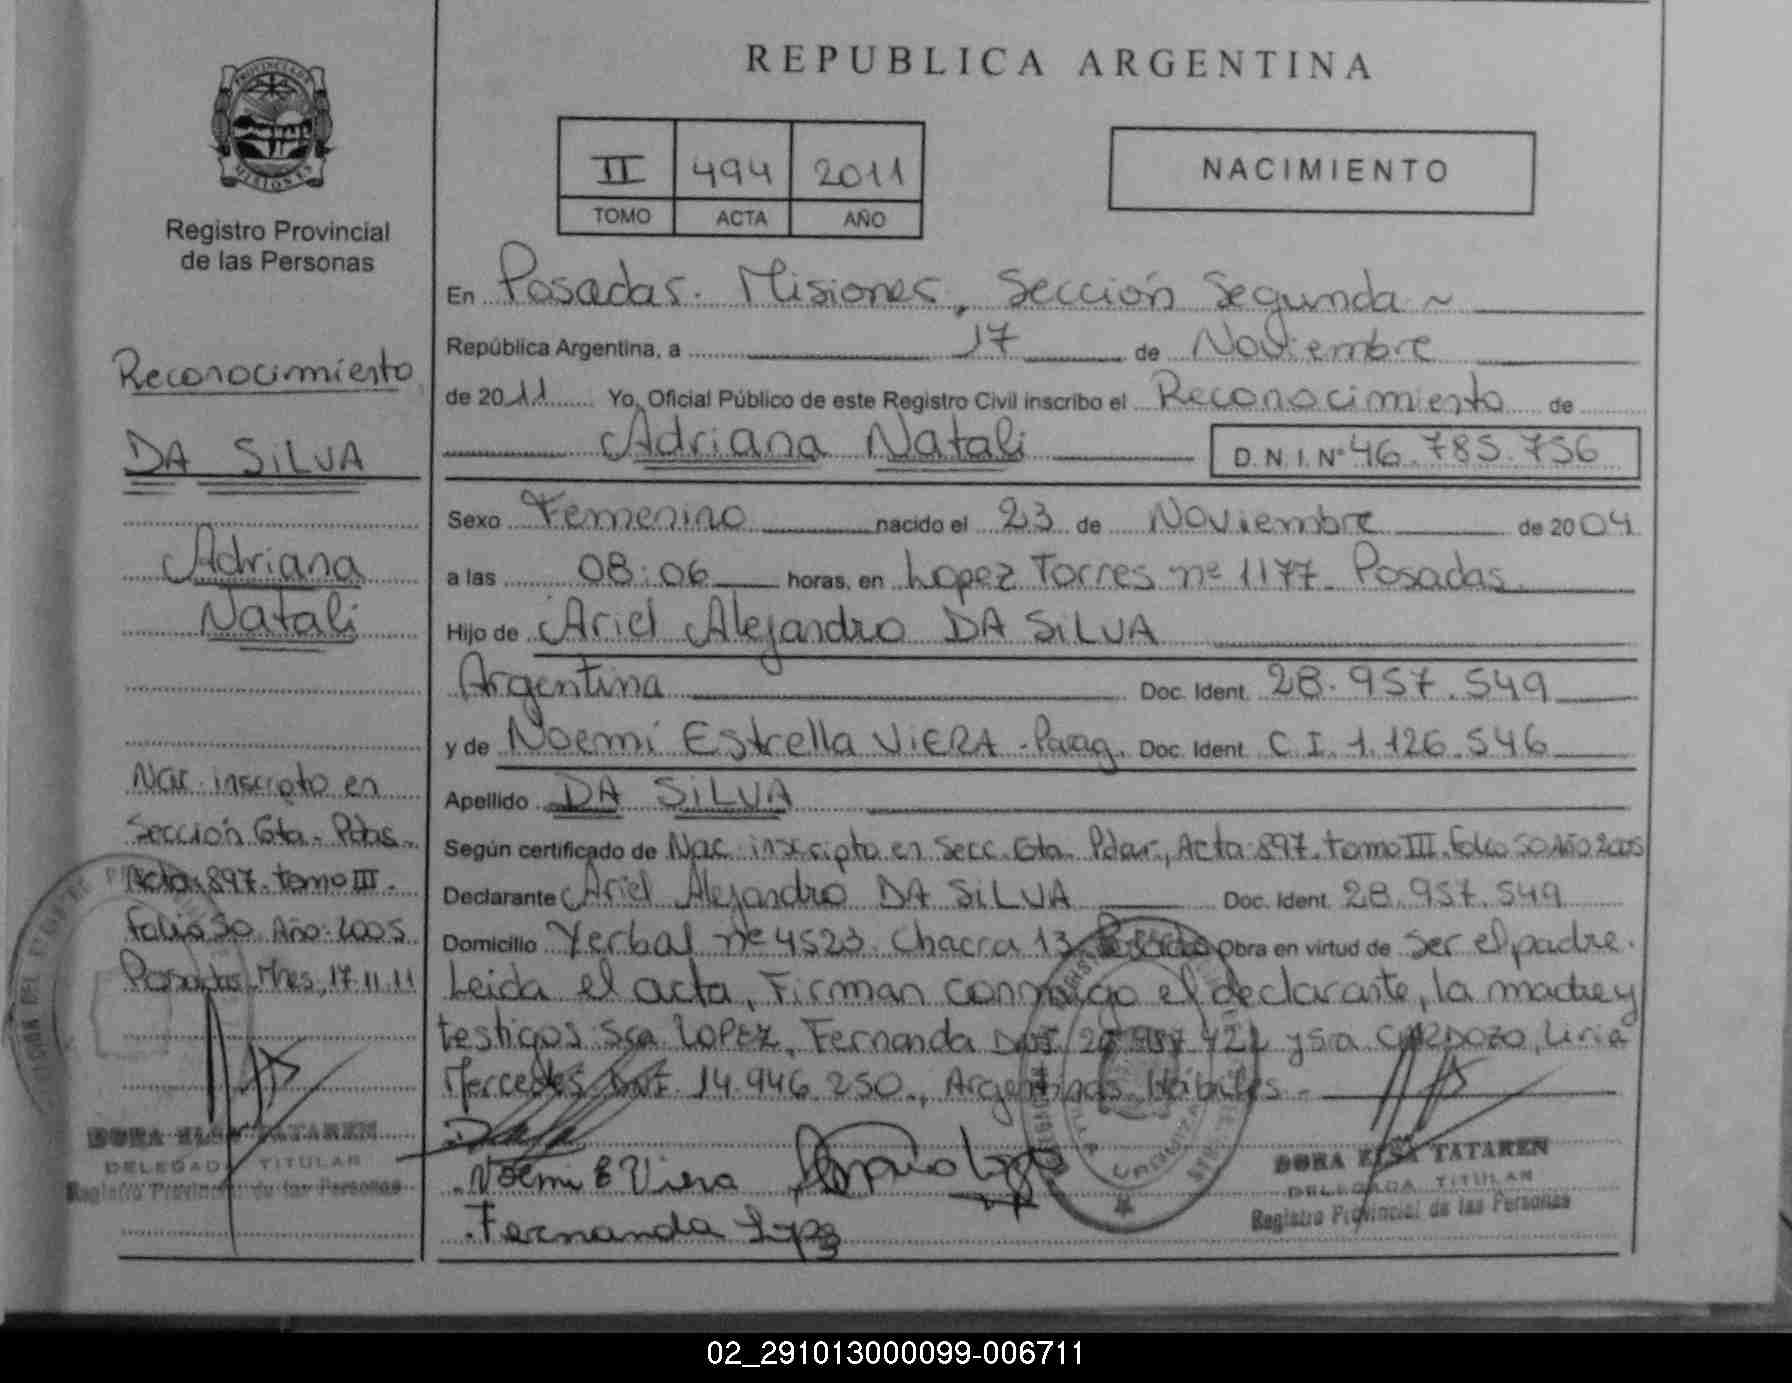 REPUBLICA ARGENTINA
PROVINCIA DE
MISIONES
Registro Provincial
de las Personas
II 494 2011
TOMO ACTA AÑO
NACIMIENTO
Reconocimiento
DA SILVA
Adriana
Natali
Nac. inscripto en
Sección 6ta - Pdas.
Acta: 897. tomo III.
Folio 50. Año: 2005.
Posadas, Mnes, 17.11.11
DORA ELSA TATAREN
DELEGADA TITULAR
Registro Provincial de las Personas
En Posadas. Misiones, Sección Segunda ~
República Argentina, a 17 de Noviembre
de 2011 Yo, Oficial Público de este Registro Civil inscribo el Reconocimiento de
Adriana Natali D.N.I. Nº 46.785.756
Sexo Femenino nacido el 23 de Noviembre de 2004
a las 08:06 horas, en Lopez Torres nº 1177. Posadas.
Hijo de Ariel Alejandro DA SILVA
Argentina Doc. Ident. 28.957.549
y de Noemi Estrella VIERA - Parag. Doc. Ident. C.I. 1.126.546
Apellido DA SILVA
Según certificado de Nac. inscripto en Secc. 6ta. Pdas, Acta: 897. tomo III. folio 50 Año 2005
Declarante Ariel Alejandro DA SILVA Doc. Ident. 28.957.549
Domicilio Yerbal nº 4523. Chacra 13. Posadas Obra en virtud de ser el padre.
Leida el acta, Firman conmigo el declarante, la madre y
testigos Sra LOPEZ, Fernanda DNI y Sra CARDOZO, Liria
Mercedes DNI. 14.946.250., Argentinas. Hábiles. -
Noemi E Viera
Fernanda Lopez
DORA ELSA TATAREN
DELEGADA TITULAR
Registro Provincial de las Personas
02_291013000099-006711